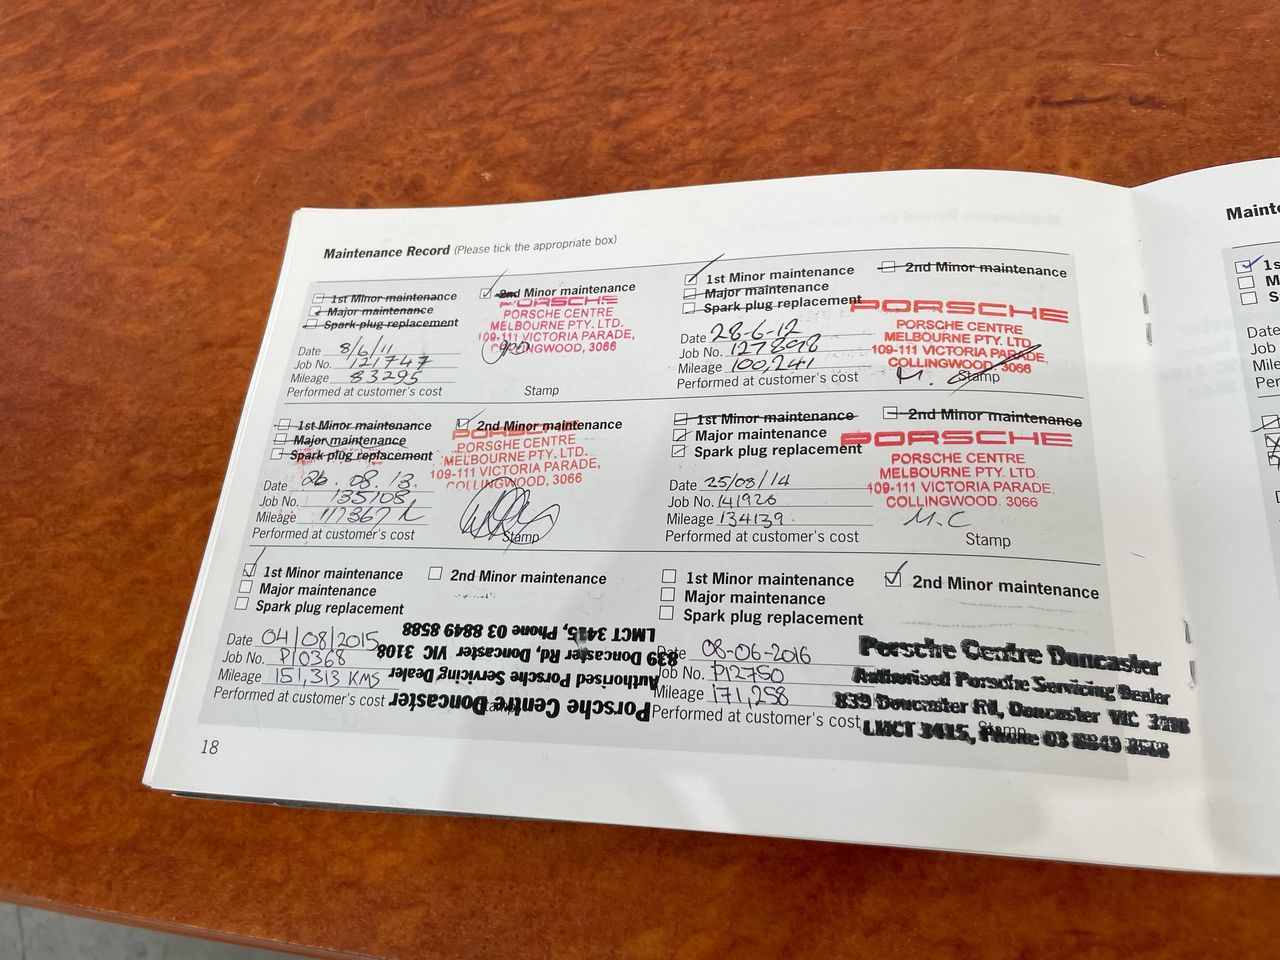 Maintenance Record (Please tick the appropriate box)
1st Minor maintenance
2nd Minor maintenance
Major maintenance
Spark plug replacement
PORSCHE
PORSCHE CENTRE
MELBOURNE PTY. LTD.
109-111 VICTORIA PARADE,
COLLINGWOOD, 3066
Date 8/6/11
Job No. 121747
Mileage 83295
Performed at customer's cost
Stamp
1st Minor maintenance
2nd Minor maintenance
Major maintenance
Spark plug replacement
PORSCHE
PORSCHE CENTRE
MELBOURNE PTY. LTD.
109-111 VICTORIA PARADE,
COLLINGWOOD, 3066
Date 28-6-12
Job No. 127898
Mileage 100,241
Performed at customer's cost
Stamp
1st Minor maintenance
2nd Minor maintenance
Major maintenance
Spark plug replacement
PORSCHE
PORSCHE CENTRE
MELBOURNE PTY. LTD.
109-111 VICTORIA PARADE,
COLLINGWOOD, 3066
Date 26.08.13.
Job No. 135108
Mileage 117367
Performed at customer's cost
Stamp
1st Minor maintenance
2nd Minor maintenance
Major maintenance
Spark plug replacement
PORSCHE
PORSCHE CENTRE
MELBOURNE PTY. LTD.
109-111 VICTORIA PARADE,
COLLINGWOOD. 3066
Date 25/08/14
Job No. 141926
Mileage 134139.
M.C
Performed at customer's cost
Stamp
1st Minor maintenance
2nd Minor maintenance
Major maintenance
Spark plug replacement
Date 04/08/2015
Job No. P10368
Mileage 151,313 KMS
Performed at customer's cost
Porsche Centre Doncaster
Authorised Porsche Servicing Dealer
839 Doncaster Rd, Doncaster VIC 3108
LMCT 3415, Phone 03 8849 8588
1st Minor maintenance
2nd Minor maintenance
Major maintenance
Spark plug replacement
Date 08-06-2016
Job No. P12750
Mileage 171,258
Performed at customer's cost
Stamp
Porsche Centre Doncaster
Authorised Porsche Servicing Dealer
839 Doncaster Rd, Doncaster VIC 3108
LMCT 3415, Phone 03 8849 8588
18